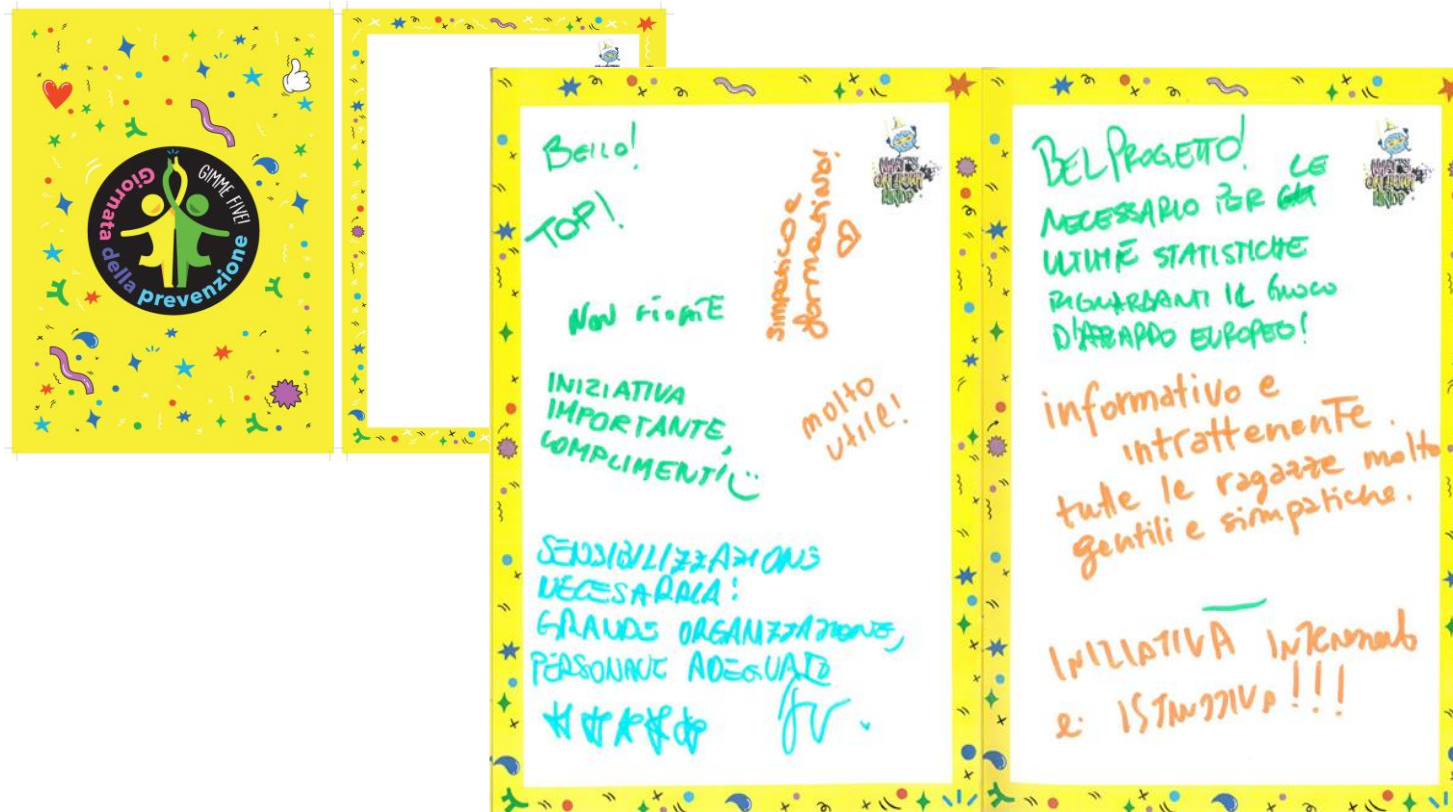 GIMME FIVE!
Giornata della prevenzione
BELLO!
TOP!
simpatico e
formativo!
INIZIATIVA
IMPORTANTE,
COMPLIMENTI
molto
utile!
SENSIBILIZZAZIONE
NECESARRIA!
GRANDE ORGANIZZAZIONE,
PERSONALE ADEGUATO
BEL PROGETTO!
NECESSARIO PER LE
ULTIME STATISTICHE
RIGUARDANTI IL GIOCO
D'AZZARDO EUROPEO!
informativo e
intrattenente.
tutte le ragazze molto
gentili e simpatiche.
INIZIATIVA
e ISTRUTTIVA!!!